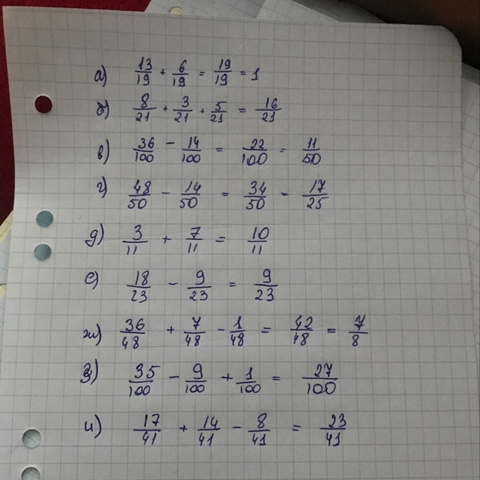 а) 13/19 + 6/19 = 19/19 = 1
б) 8/21 + 3/21 + 5/21 = 16/21
в) 36/100 - 14/100 = 22/100 = 11/50
г) 48/50 - 14/50 = 34/50 - 17/25
д) 3/11 + 7/11 = 10/11
е) 18/23 - 9/23 = 9/23
ж) 36/48 + 7/48 - 1/48 = 42/48 = 7/8
з) 35/100 - 9/100 + 1/100 = 27/100
и) 17/41 + 14/41 - 8/41 = 23/41